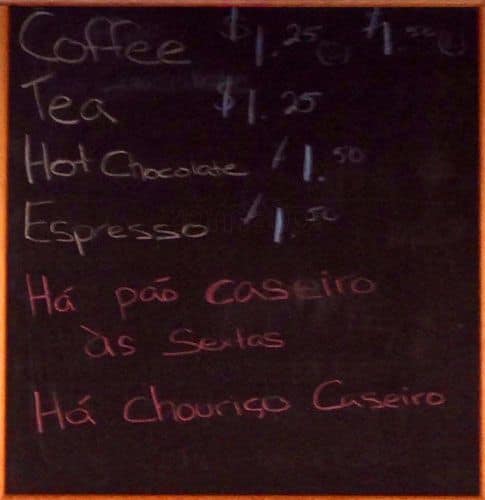 Coffee $1.25 $1.50
Tea $1.25
Hot Chocolate 1.50
Espresso 1.50
Há pão caseiro
às Sextas
Há Chouriço Caseiro